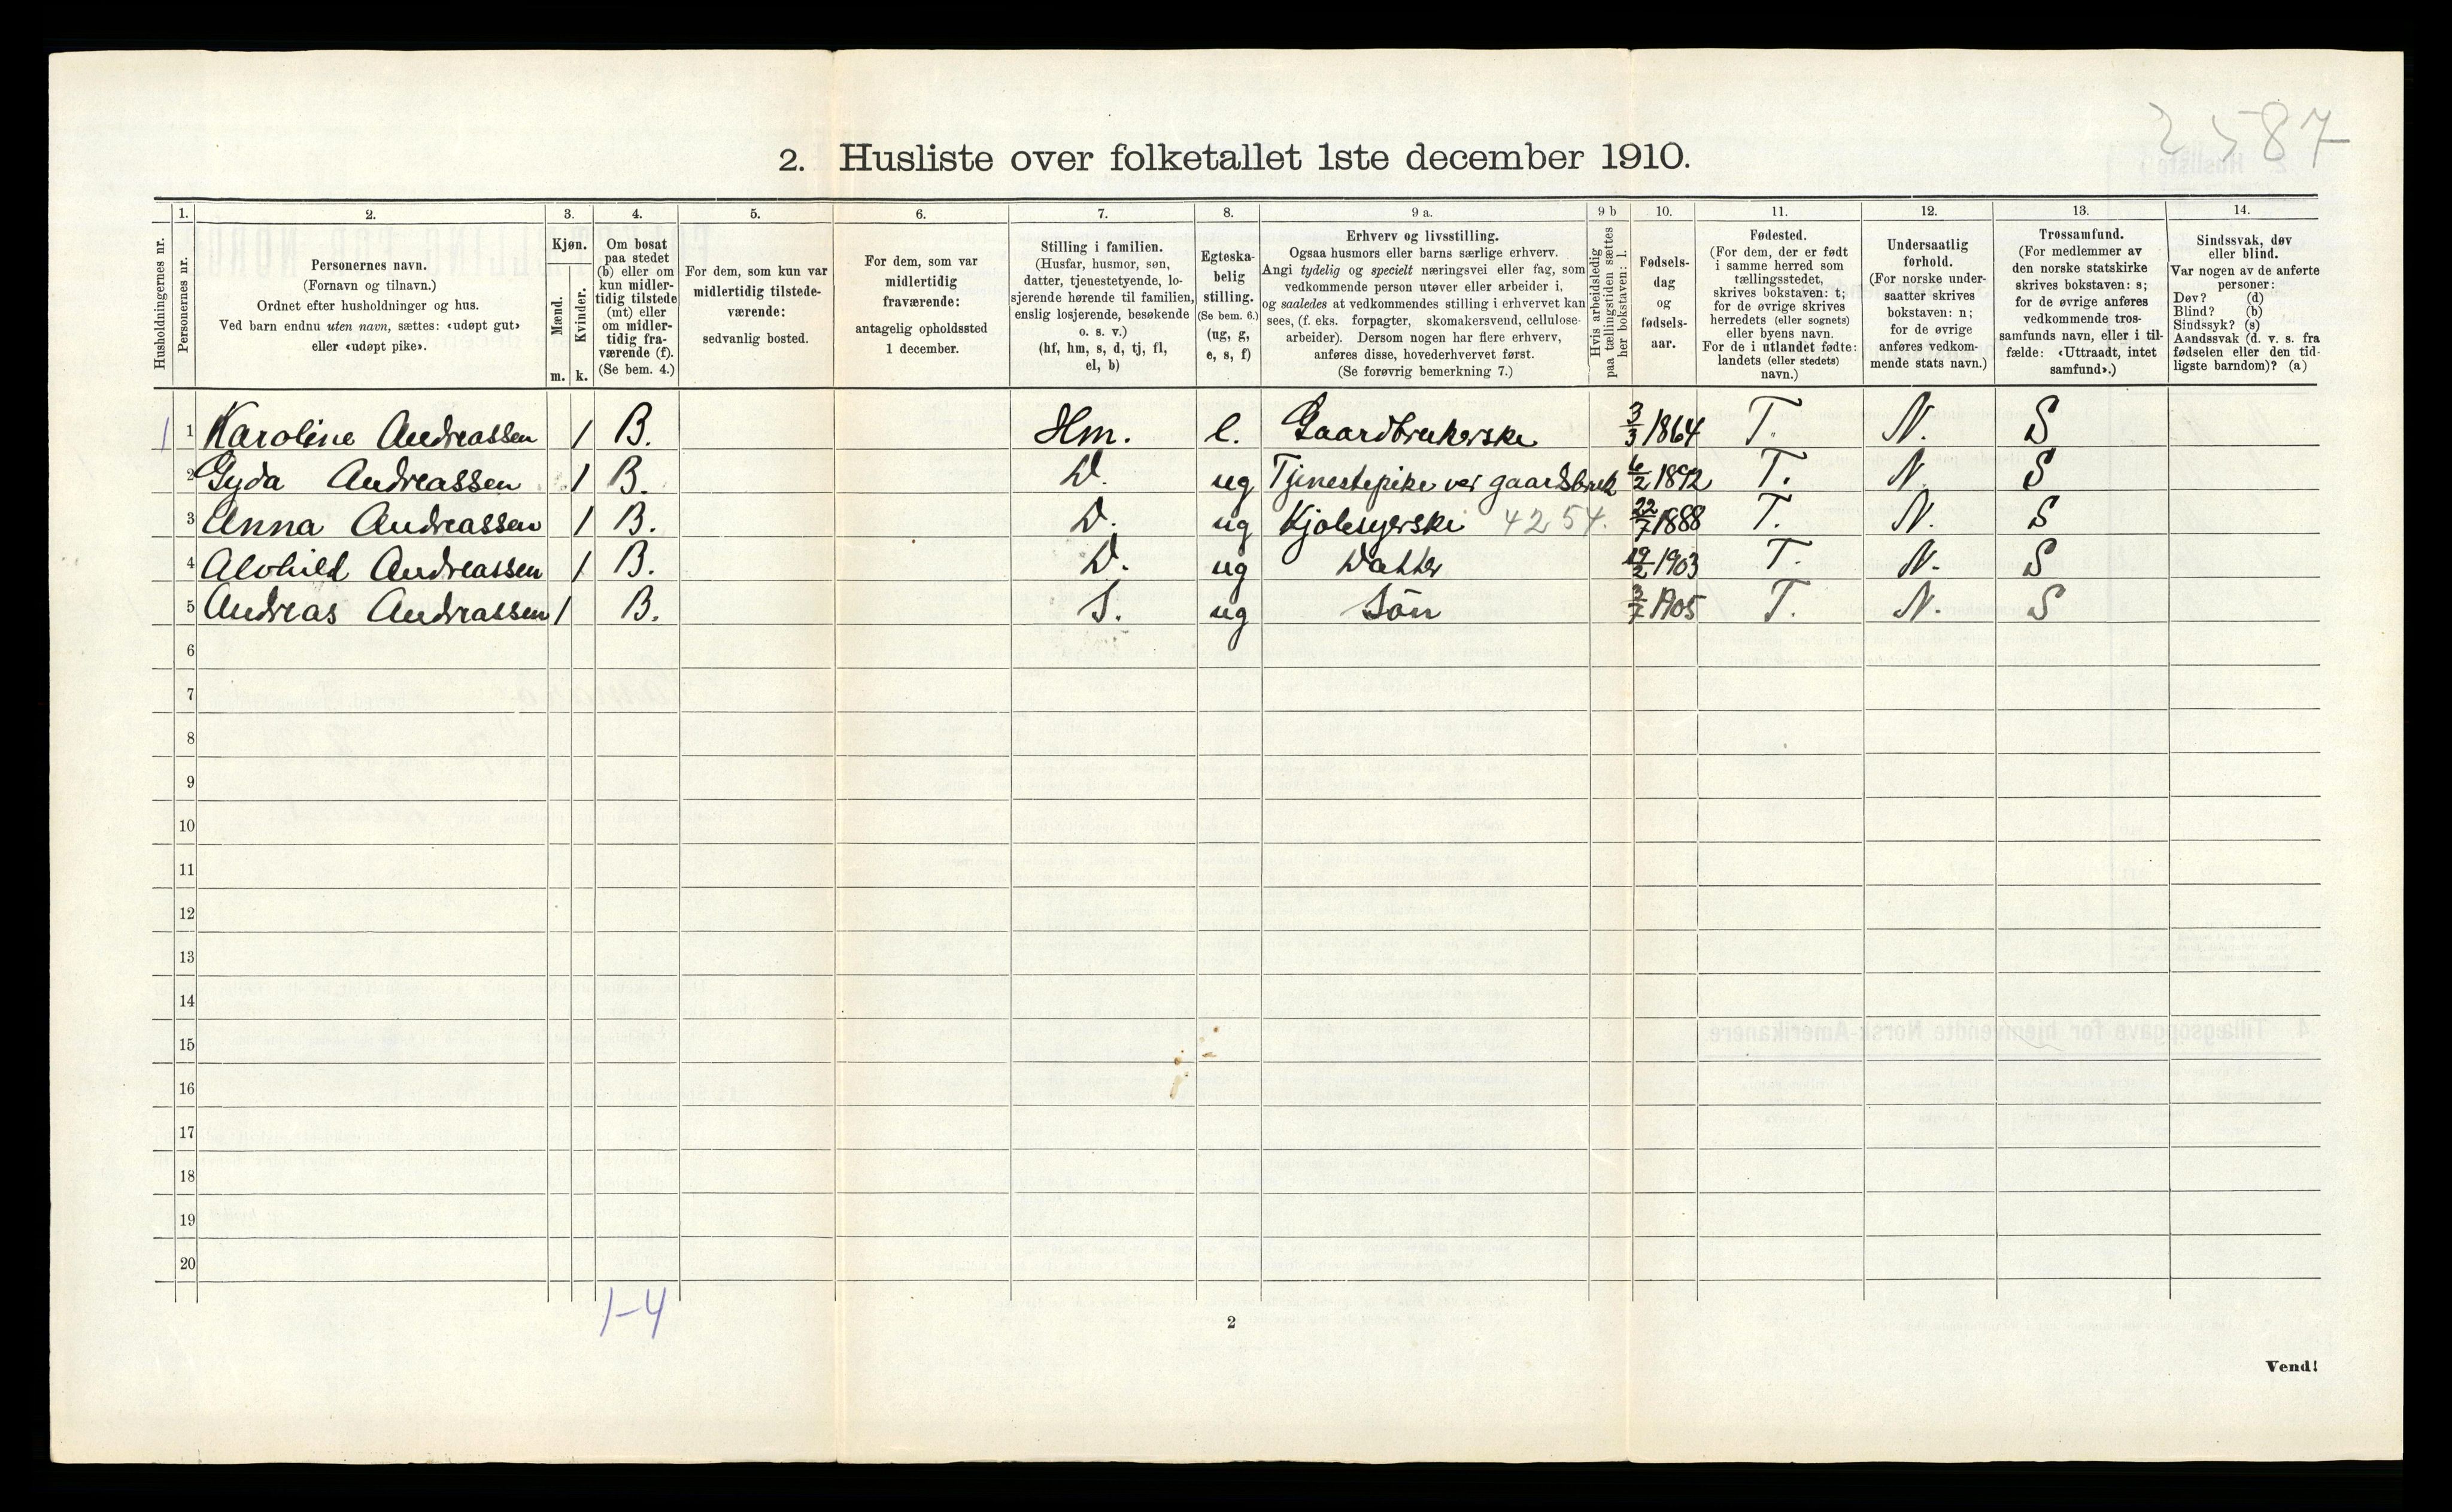 2587
2. Husliste over folketallet 1ste december 1910.
Husholdningernes nr.
1.
Personernes nr.
2.
Personernes navn.
(Fornavn og tilnavn.)
Ordnet efter husholdninger og hus.
Ved barn endnu uten navn, sættes: «udøpt gut»
eller «udøpt pike».
3.
Kjøn.
Mænd.
Kvinder.
m. k.
4.
Om bosat
paa stedet
(b) eller om
kun midler-
tidig tilstede
(mt) eller
om midler-
tidig fra-
værende (f).
(Se bem. 4.)
5.
For dem, som kun var
midlertidig tilstede-
værende:
sedvanlig bosted.
6.
For dem, som var
midlertidig
fraværende:
antagelig opholdssted
1 december.
7.
Stilling i familien.
(Husfar, husmor, søn,
datter, tjenestetyende, lo-
sjerende hørende til familien,
enslig losjerende, besøkende
o. s. v.)
(hf, hm, s, d, tj, fl,
el, b)
8.
Egteska-
belig
stilling.
(Se bem. 6.)
(ug, g,
e, s, f)
9 a.
Erhverv og livsstilling.
Ogsaa husmors eller barns særlige erhverv.
Angi tydelig og specielt næringsvei eller fag, som
vedkommende person utøver eller arbeider i,
og saaledes at vedkommendes stilling i erhvervet kan
sees, (f. eks. forpagter, skomakersvend, cellulose-
arbeider). Dersom nogen har flere erhverv,
anføres disse, hovederhvervet først.
(Se forøvrig bemerkning 7.)
9 b
Hvis arbeidsledig
paa tællingstiden sættes
her bokstaven: l.
10.
Fødsels-
dag
og
fødsels-
aar.
11.
Fødested.
(For dem, der er født
i samme herred som
tællingsstedet,
skrives bokstaven: t;
for de øvrige skrives
herredets (eller sognets)
eller byens navn.
For de i utlandet fødte:
landets (eller stedets)
navn.)
12.
Undersaatlig
forhold.
(For norske under-
saatter skrives
bokstaven: n;
for de øvrige
anføres vedkom-
mende stats navn.)
13.
Trossamfund.
(For medlemmer av
den norske statskirke
skrives bokstaven: s;
for de øvrige anføres
vedkommende tros-
samfunds navn, eller i til-
fælde: «Uttraadt, intet
samfund».)
14.
Sindssvak, døv
eller blind.
Var nogen av de anførte
personer:
Døv? (d)
Blind? (b)
Sindssyk? (s)
Aandssvak (d. v. s. fra
fødselen eller den tid-
ligste barndom)? (a)
1 1 Karoline Andreassen 1 B. Hm. e. Gaardbrukerske 3/3 1864 T. N. S
2 Gyda Andreassen 1 B. D. ug Tjenestepike ved gaardsbruk 6/2 1892 T. N. S
3 Anna Andreassen 1 B. D. ug Kjolesyerske 4254. 22/7 1888 T. N. S
4 Alvhild Andreassen 1 B. D. ug Datter 19/2 1903 T. N. S
5 Andreas Andreassen 1 B. S. ug Sön 3/7 1905 T. N. S
6
7
8
9
10
11
12
13
14
15
16
17
18
19
20
1-4
2
Vend!